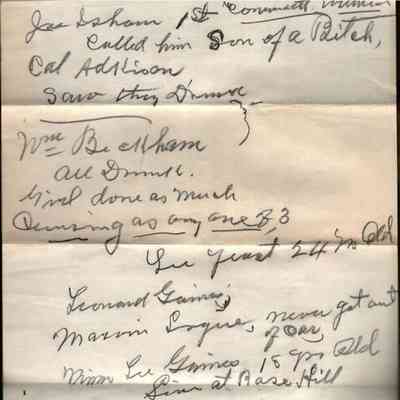 Joe Isham 1st Commonwealth witness
Called him Son of a Bitch,
Cal Adkison
Saw they Drunk
Wm Beckham
All Drunk.
Girl done as much
Cursing as any one of 3
Lee Yeast 24 yrs Old
Leonard Gaines,
Marvin never got out
of car,
Lee Gaines 18 yrs Old
Live at Rose Hill